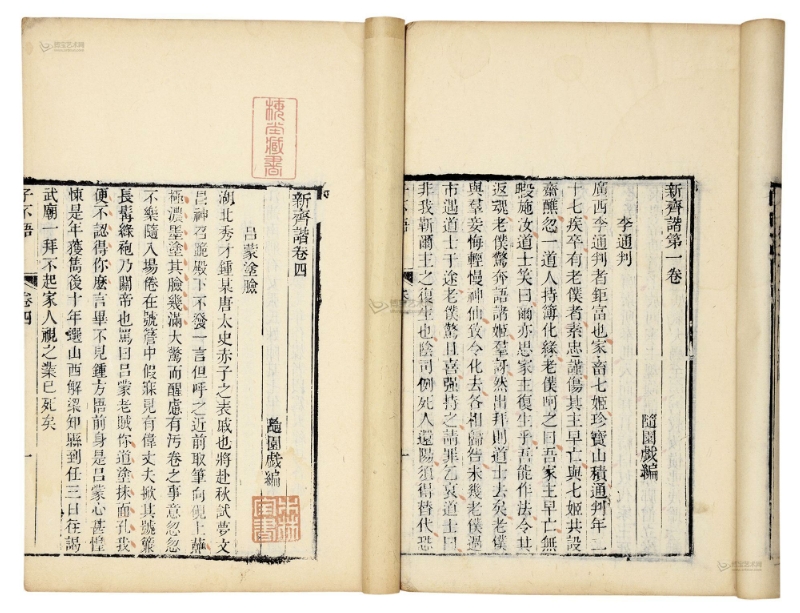 新齊諧第一卷
隨園戲編
李通判
廣西李通判者鉅富也家畜七姬珍寶山積通判年二
十七疾卒有老僕者素忠謹傷其主早亡與七姬共設
齋醮忽一道人持簿化緣老僕呵之曰吾家主早亡無
暇施汝道士笑曰爾亦思家主復生乎吾能作法令其
返魂老僕驚奔語諸姬羣訝然出拜則道士去矣老僕
與羣妾悔輕慢神仙致令化去各相歸咎未幾老僕過
市遇道士于途老僕驚且喜强持之請罪乞哀道士曰
非我靳爾主之復生也陰司例死人還陽須得替代恐
子不語
新齊諧卷四
隨園戲編
呂蒙塗臉
湖北秀才鍾某唐太史赤子之表戚也將赴秋試夢文
昌神召跪殿下不發一言但呼之近前取筆向硯上蘸
極濃墨塗其臉幾滿大驚而醒慮有污卷之事意忽忽
不樂隨入場倦在號管中假寐見有偉丈夫掀其號簾
長髯綠袍乃關帝也罵曰呂蒙老賊你道塗抹面孔我
便不認得你麼言畢不見鍾方悟前身是呂蒙心甚惶
悚是年獲雋後十年選山西解梁知縣到任三日往謁
武廟一拜不起家人視之業已死矣
子不語
卷四
一